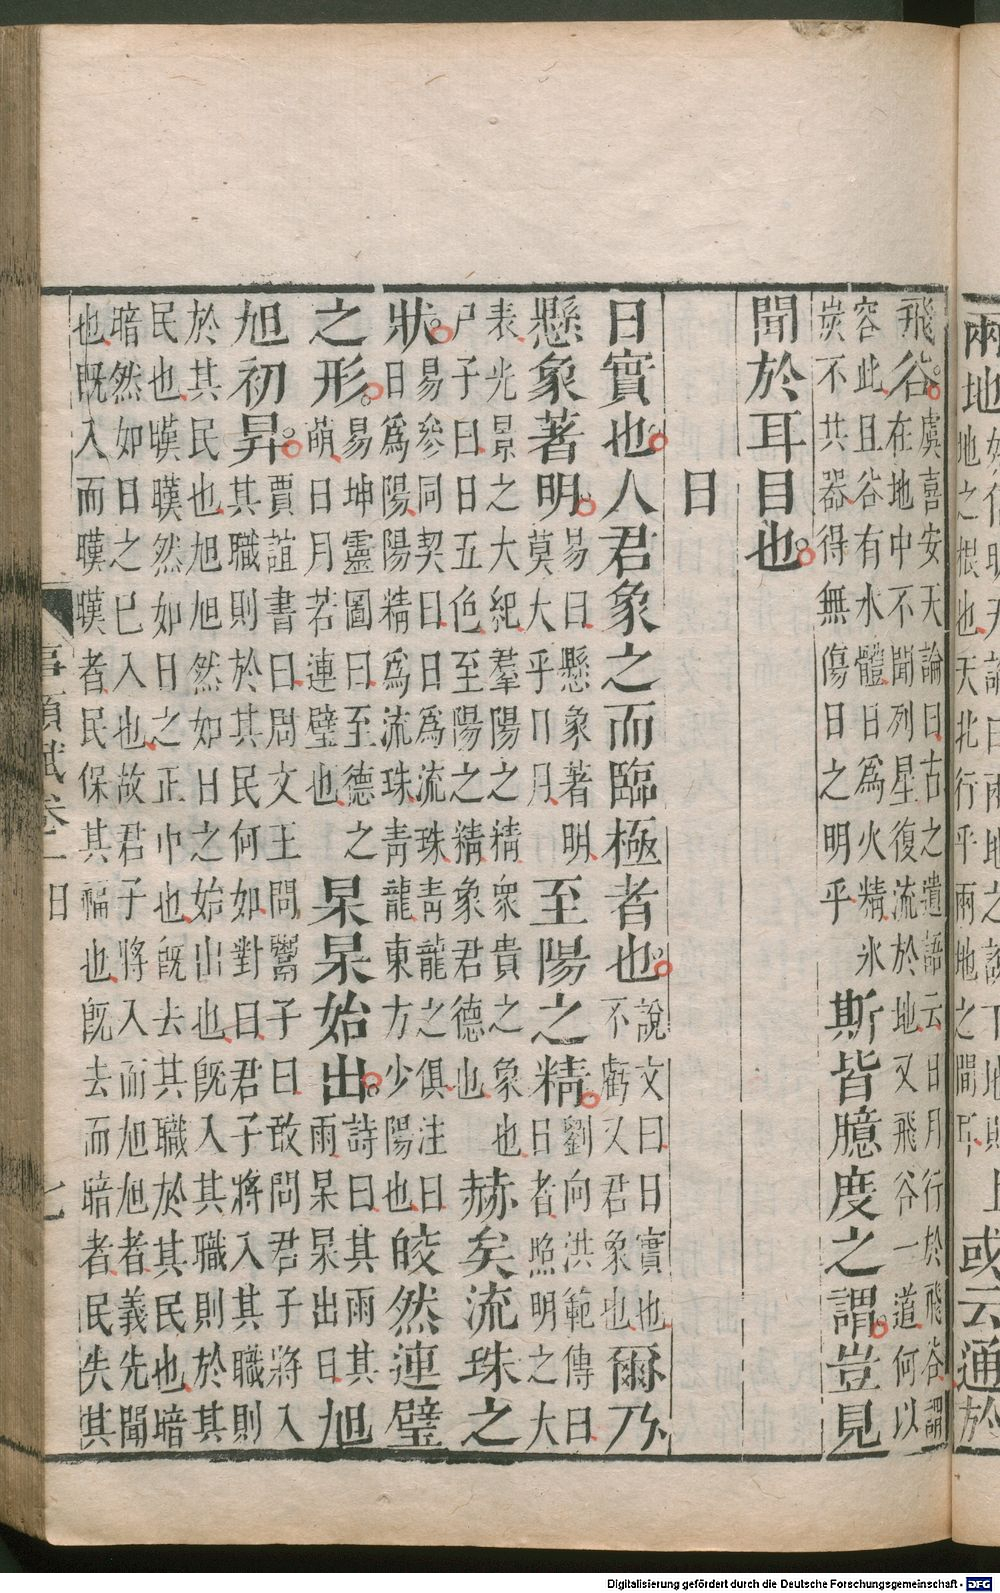 兩地
地之根也天北行乎兩地之間耳
上或云通於
飛谷
虞喜安天論曰古之遺語云日月行於飛谷謂
在地中不聞列星復流於地又飛谷一道何以
容此且谷有水體日爲火精氷
炭不共器得無傷日之明乎
斯皆臆度之謂豈見
聞於耳目也
日
日實也人君象之而臨極者也
說文曰日實也
不虧又君象也
爾乃
懸象著明
易曰懸象著明
莫大乎日月
至陽之精
劉向洪範傳曰
日者照明之大
表光景之大紀羣陽之精衆貴之象也
尸子曰日五色至陽之精象君德也
赫矣流珠之
狀
易參同契曰日爲流珠青龍之俱注曰
日爲陽陽精爲流珠青龍東方少陽也
皎然連璧
之形
易坤靈圖曰至德之
萌日月若連璧也
杲杲始出
詩曰其雨其
雨杲杲出日
旭
旭初昇
賈誼書曰周文王問鬻子曰敢問君子將入
其職則於其民何如對曰君子將入其職則
於其民也旭旭然如日之始出也旣入其職則於其
民也暵暵然如日之正中也旣去其職於其民也暗
暗然如日之已入也故君子將入而旭旭者義先聞
也旣入而暵暵者民保其福也旣去而暗者民失其
事類賦卷一 日 七
Digitalisierung gefördert durch die Deutsche Forschungsgemeinschaft - DFG